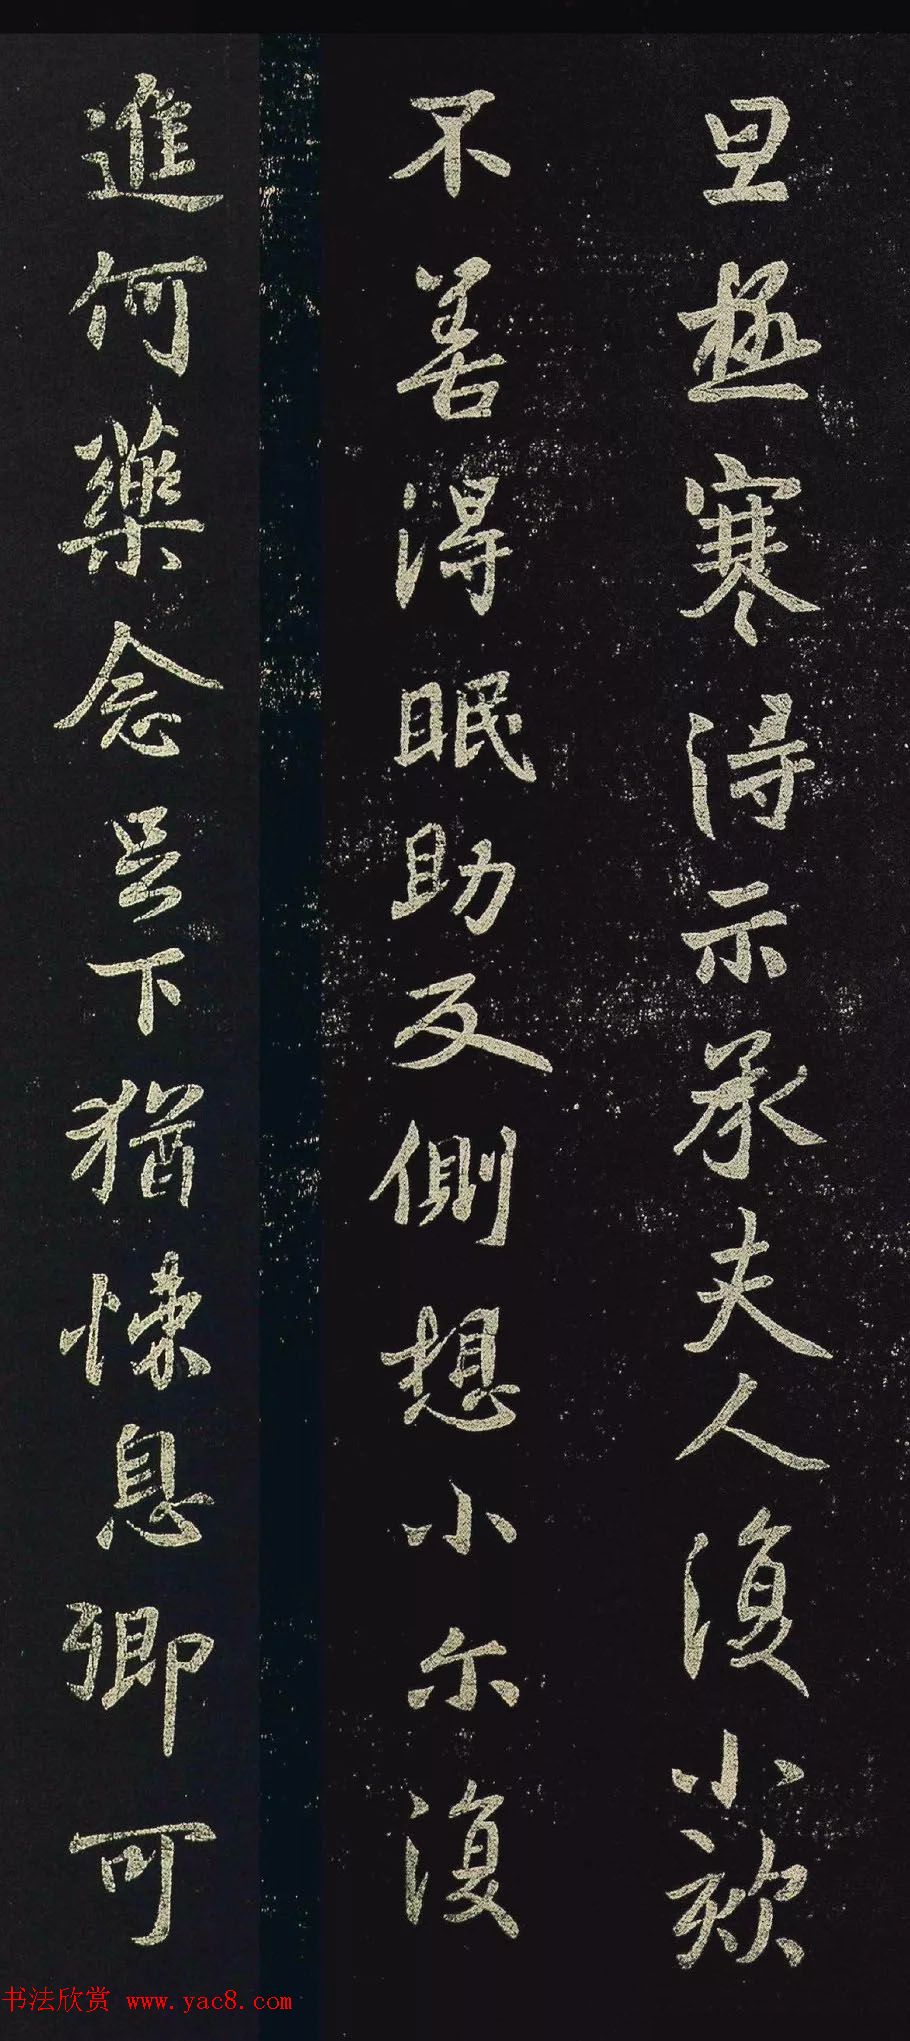 旦極寒得示承夫人復小欬
不善得眠助反側想小尔復
進何藥念足下猶悚息卿可
书法欣赏 www.yac8.com